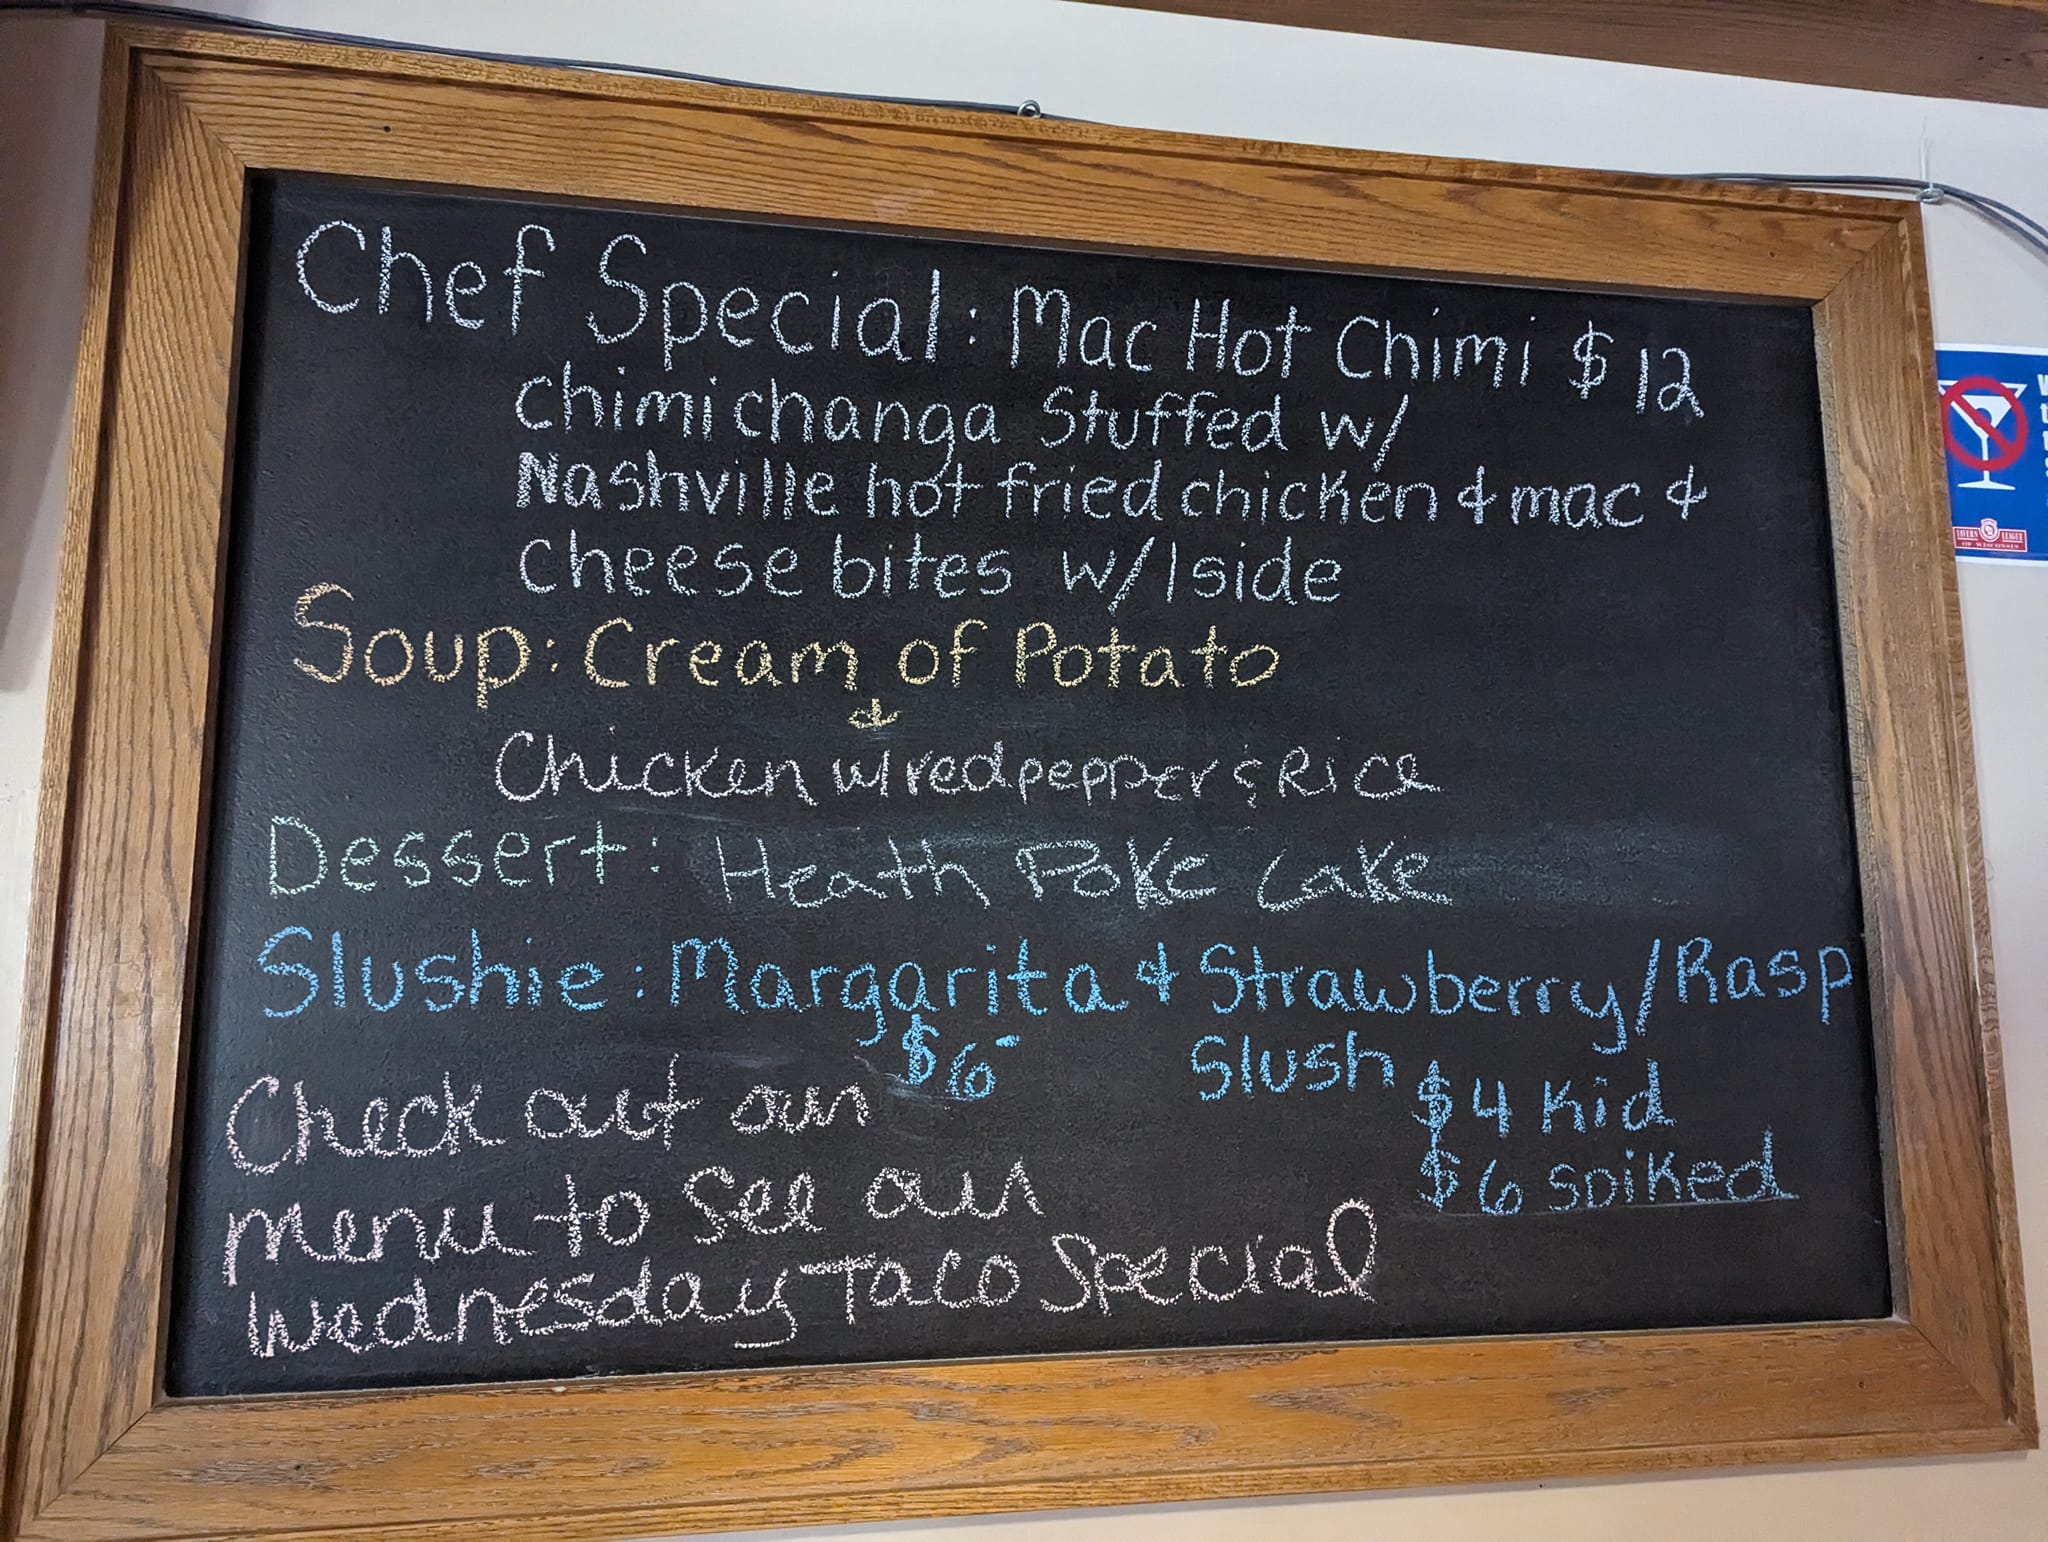 Chef Special: Mac Hot Chimi $12
chimichanga Stuffed w/
Nashville hot fried chicken & mac &
cheese bites w/ 1 side
Soup: Cream of Potato
&
Chicken w/ red pepper & Rice
Dessert: Heath Poke Cake
Slushie: Margarita & Strawberry/Rasp
$6- Slush
$4 Kid
$6 spiked
Check out our
menu to see our
Wednesday Taco Special
TAVERN LEAGUE
OF WISCONSIN